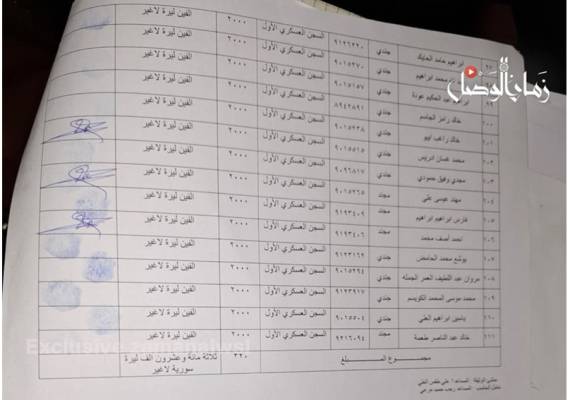 زمان الوصل
ابراهيم حامد الحايك جندي ٩١٢٦٢٢٠ السجن العسكري الأول ٢٠٠٠ الفين ليرة لاغير
محمد ابراهيم جندي ٩٠١٥٢٧٠ السجن العسكري الأول ٢٠٠٠ الفين ليرة لاغير
عبد الحكيم عودة جندي ٩٠١٥١٥٧ السجن العسكري الأول ٢٠٠٠ الفين ليرة لاغير
٢٠٠ خالد رامز الجاسم جندي ٨٩٤٢٨٩١ السجن العسكري الأول ٢٠٠٠ الفين ليرة لاغير
٢٠١ خالد راغب ايبو جندي ٩٠١٥٩٣٨ السجن العسكري الأول ٢٠٠٠ الفين ليرة لاغير
٢٠٢ محمد غسان ادريس جندي ٩٠١٥٥١٥ السجن العسكري الأول ٢٠٠٠ الفين ليرة لاغير
٢٠٣ مجدي وفيق حمودي جندي ٩٠٩٦٥١٧ السجن العسكري الأول ٢٠٠٠ الفين ليرة لاغير
٢٠٤ مهند عيسى علي مجند ٩٠١٥٢٦٥ السجن العسكري الأول ٢٠٠٠ الفين ليرة لاغير
٢٠٥ فارس ابراهيم ابراهيم مجند ٩١٩٣٤٠٩ السجن العسكري الأول ٢٠٠٠ الفين ليرة لاغير
٢٠٦ احمد آصف محمد مجند ٩١٩٣٤٠٦ السجن العسكري الأول ٢٠٠٠ الفين ليرة لاغير
٢٠٧ يوشع محمد الحامض جندي ٩١٢٣١٦٩ السجن العسكري الأول ٢٠٠٠ الفين ليرة لاغير
٢٠٨ مروان عبد اللطيف العمر الجمله جندي ٩٠١٥٢٩٤ السجن العسكري الأول ٢٠٠٠ الفين ليرة لاغير
٢٠٩ محمد موسى المحمد الكويسم جندي ٩١٢٣٩١٧ السجن العسكري الأول ٢٠٠٠ الفين ليرة لاغير
٢١٠ ياسين ابراهيم العلي جندي ٩٠١٥٥٠٤ السجن العسكري الأول ٢٠٠٠ الفين ليرة لاغير
٢١١ خالد عبد الناصر طعمة مجند ٩٢١٢٠٩٤ السجن العسكري الأول ٢٠٠٠ الفين ليرة لاغير
مجموع المبلغ ٣٢٠ ثلاثة مائة وعشرون الف ليرة سورية لاغير
المساعد ١ علي
المساعد رجب حميد مرعي
Exclusive zamanalwsl